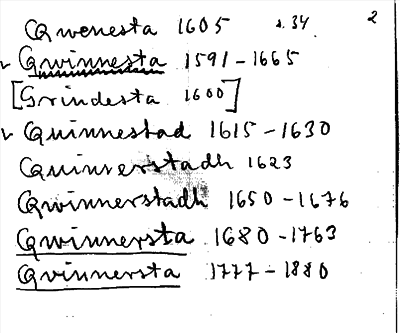 Qwenesta 1605 s. 34 2
Qwinnesta 1591-1665
[Grindesta 1600]
Quinnestad 1615-1630
Quinverstadh 1623
Qwinnerstadh 1650-1676
Qwinnersta 1680-1763
Qvinnersta 1777-1880